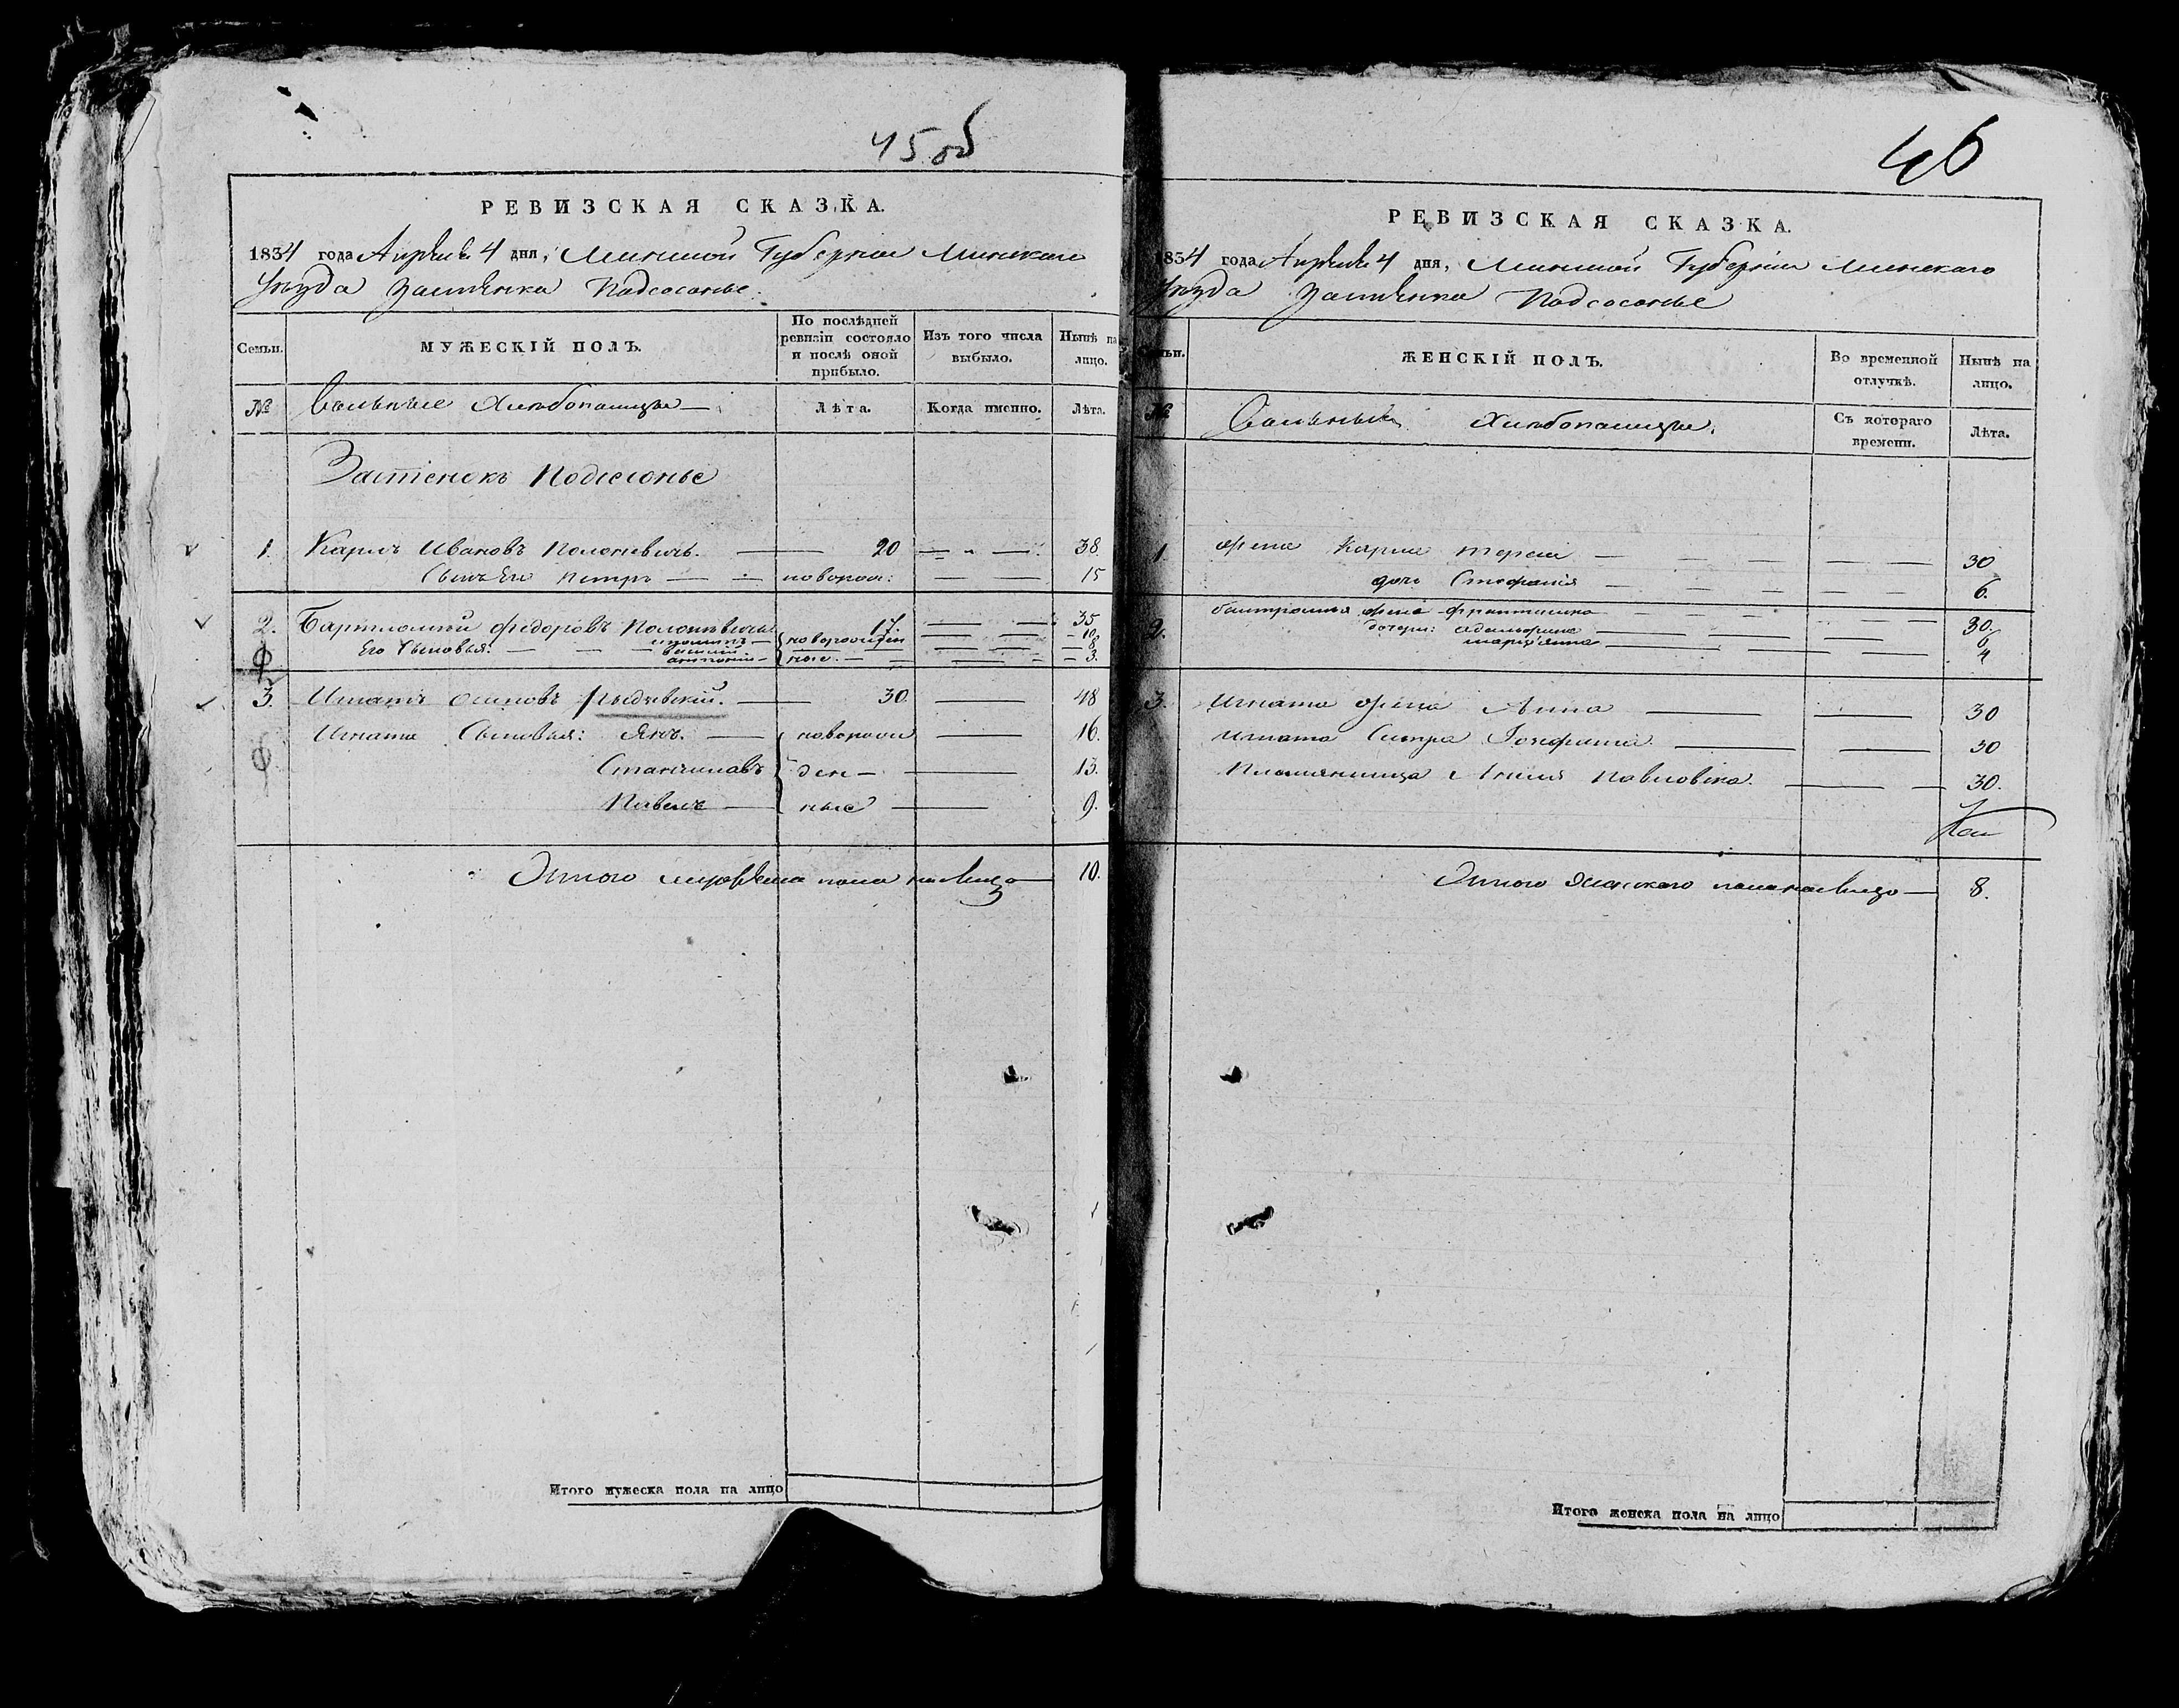 45 об
РЕВИЗСКАЯ СКАЗКА.
1834 года Апреля 4 дня, Минской Губернiи Минскаго
Уезда Застенка Подсосонье.
Семьи.
МУЖЕСКІЙ ПОЛЪ.
По послѣдней ревизіи состояло и послѣ оной прибыло.
Изъ того числа выбыло.
Нынѣ на лицо.
№
Вольные Хлебопашцы
Лѣта.
Когда именно.
Лѣта.
Застенокъ Подсосонье
1. Карлъ Ивановъ Полоневичъ. 20 38
Сынъ Его Петръ новорож: 15
2. Бартломей Федоровъ 17. 35
Его Сыновья: новорожден 10
8
Антоній ные. 3.
3. Игнатъ Осиповъ 30 48
Игната Сыновья: Янъ. новорож 16.
Станиславъ ден 13.
Павелъ ные 9.
Этого мужеска пола на лицо 10.
Итого мужеска пола на лицо
46
РЕВИЗСКАЯ СКАЗКА.
1834 года Апреля 4 дня, Минской Губернiи Минскаго
Уезда Застенка Подсосонье
Семьи.
ЖЕНСКІЙ ПОЛЪ.
Во временной отлучкѣ.
Нынѣ на лицо.
№
Вольныхъ Хлебопашцы.
Съ котораго времени.
Лѣта.
1. Жена Карла Тереса 30
дочь Стефанія 6.
2. Бантромея жена Франтишка 30.
дочери: 6
Маріянна 4
3. Игната жена Анна 30
Игната Сестра 30
Племянница Анеля Павловна. 30.
Этого Женскаго пола на лицо 8.
Итого женска пола на лицо